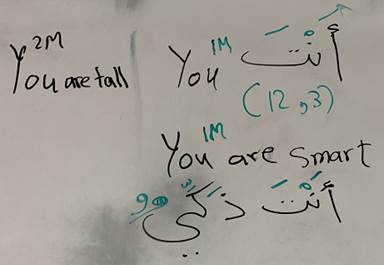 You 2M
You are tall
You 1M أَنْتَ
(12 ,3)
You 1M are smart
أَنْتَ ذَكي